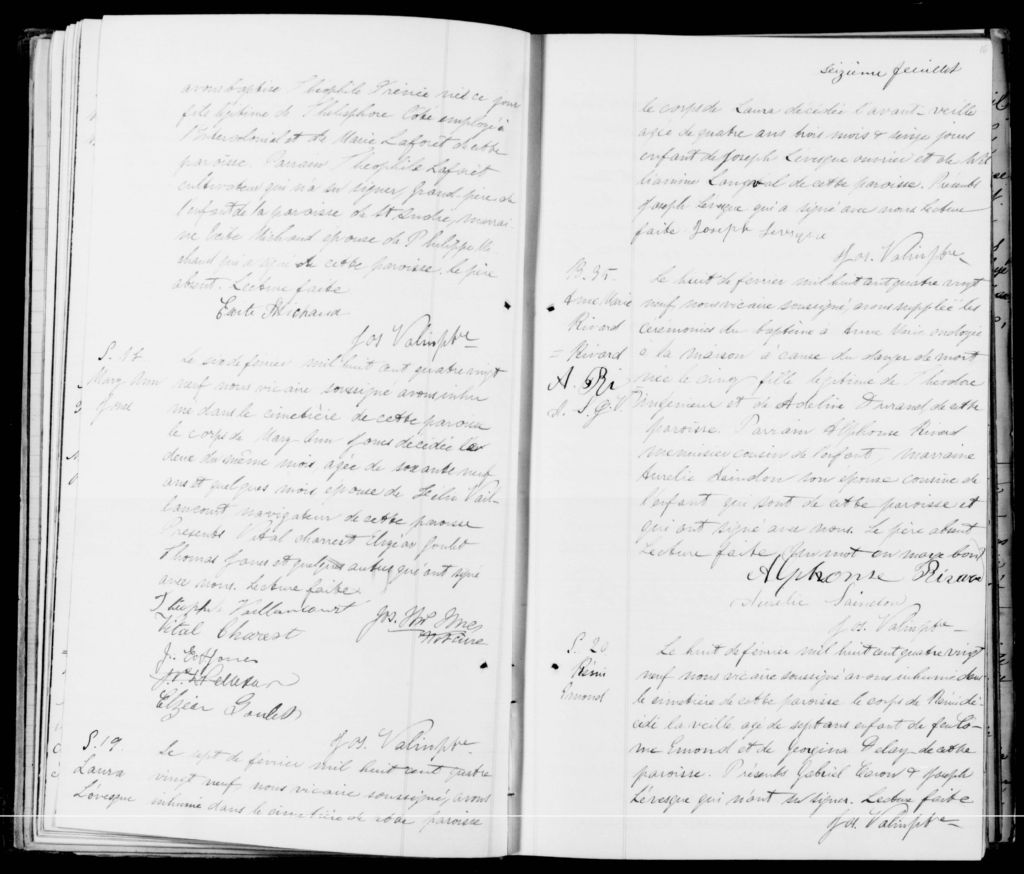 avons baptisé Théophile Irénée né ce jour
fils légitime de Thélesphore Coté employé à
l'Intercolonial et de Marie Laforêt de cette
paroisse. Parrain Théophile Laforêt
cultivateur qui n'a su signer, grand-père de
l'enfant de la paroisse de St André, marrai
ne Exite Michaud épouse de Philippe Mi
chaud qui a signé de cette paroisse. le père
absent. Lecture faite
Exite Michaud
Jos Valin ptre
S. 18
Mary Ann
Jones
Le six de février mil huit cent quatre vingt
neuf nous vicaire soussigné avons inhu
mé dans le cimetière de cette paroisse
le corps de Mary-Ann Jones décédée le
deux du même mois agée de soixante neuf
ans et quelques mois épouse de Félix Vail
lancourt navigateur de cette paroisse
Présents Vital Charrest Elzéar Goulet
Thomas Jones et quelques autres qui ont signé
avec nous. Lecture faite.
Théophile Vaillancourt
Vital Charest
Jos.
J. Jones
Elzéar Goulet
Jos. Valin ptre
S. 19
Laura
Lévesque
Le sept de février mil huit cent quatre
vingt neuf nous vicaire soussigné, avons
inhumé dans le cimetière de cette paroisse
16
Seizième feuillet
le corps de Laura décédée l'avant-veille
agée de quatre ans trois mois & seize jours
enfant de Joseph Lévesque ouvrier et de Wil
liamine Langval de cette paroisse. Présents
Joseph Levesque qui a signé avec nous Lecture
faite. Joseph Levesque
Jos. Valin ptre
B. 35
Anne Marie
Rivard
= Rivard
A. Ri
J. V.
Le huit de février mil huit cent quatre vingt
neuf, nous vicaire soussigné, avons suppléé les
cérémonies du baptême à Anne Marie ondoyée
à la maison à cause du danger de mort
née le cinq fille légitime de Théodore
ingénieur et de Adeline Durand de cette
paroisse. Parrain Alphonse Rivard
menuisier cousin de l'enfant, marraine
Aurélie Saindon son épouse cousine de
l'enfant qui sont de cette paroisse et
qui ont signé avec nous. Le père absent
Lecture faite (un mot en marge bon)
Alphonse Rivard
Aurélie Saindon
Jos. Valin ptre
S. 20
Rémi
Emond
Le huit de février mil huit cent quatre vingt
neuf nous vicaire soussigné avons inhumé dans
le cimetière de cette paroisse le corps de Rémi dé
cédé la veille agé de sept ans enfant de feu Co
me Emond et de Georgina Delay de cette
paroisse. Présents Gabriel Caron & Joseph
Lévesque qui n'ont su signer. Lecture faite
Jos. Valin ptre